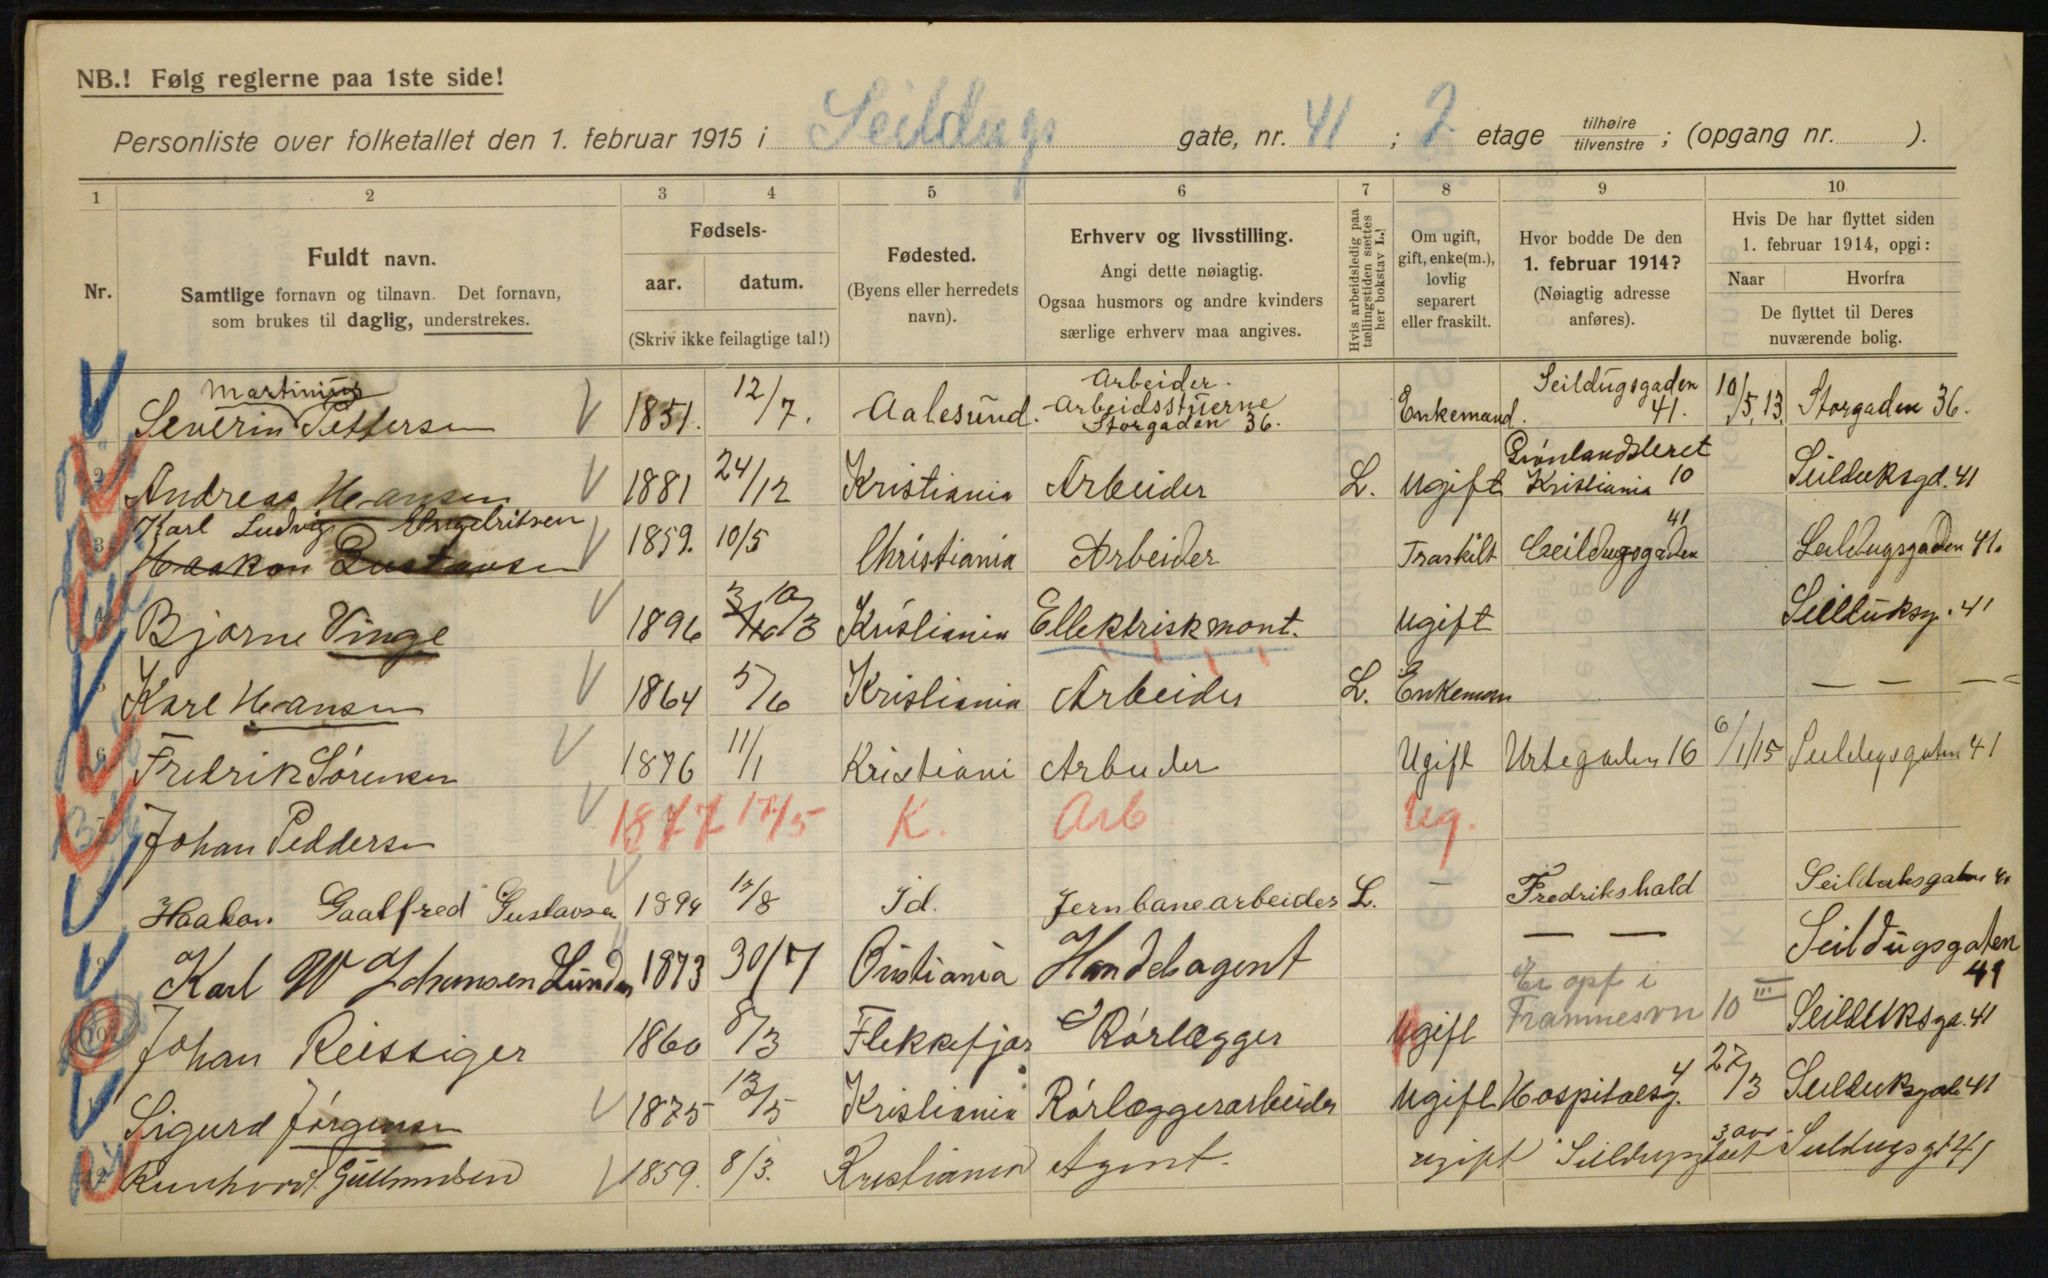 NB.! Følg reglerne paa 1ste side!
Personliste over folketallet den 1. februar 1915 i Seildugs gate, nr. 41 ; 2 etage tilhøire tilvenstre ; (opgang nr. ).
1 2 3 4 5 6 7 8 9 10
Nr.
Fuldt navn.
Samtlige fornavn og tilnavn. Det fornavn,
som brukes til daglig, understrekes.
Fødsels-
aar. datum.
(Skriv ikke feilagtige tal!)
Fødested.
(Byens eller herredets
navn).
Erhverv og livsstilling.
Angi dette nøiagtig.
Ogsaa husmors og andre kvinders
særlige erhverv maa angives.
Hvis arbeidsledig paa
tællingstiden sættes
her bokstav L.
Om ugift,
gift, enke(m.),
lovlig
separert
eller fraskilt.
Hvor bodde De den
1. februar 1914?
(Nøiagtig adresse
anføres).
Hvis De har flyttet siden
1. februar 1914, opgi:
Naar Hvorfra
De flyttet til Deres
nuværende bolig.
Severin Martinius Pettersen 1851. 12/7. Aalesund. Arbeider. Arbeidsstuerne Storgaden 36. Enkemand. Seildugsgaden 41. 10/5, 13, Storgaden 36.
2 Andreas Hansen 1881 24/12 Kristiania Arbeider L. Ugift Grønlandsleret Kristiania 10 Seilduksgd. 41
3 Karl Ludvig Engebritsen
Haakon Gustavsen 1859. 10/5 Christiania Arbeider Fraskilt Ceildugsgaden 41 Seildugsgaden 41.
4 Bjarne Vinge 1896 10/3 Kristiania Ellektriskmont. Ugift Seilduksg. 41
5 Karl Hansen 1864 5/6 Kristiania Arbeider L. Enkeman — — —
6 Fredrik Sørensen 1876 11/1 Kristiani Arbeider Ugift Urtegaden 16 6/1/15 Seildugsgaten 41
7 Johan Peddersen 1877 17/5 K. Arb Ug.
Haakon Gaalfred Gustavsen 1894 12/8 Id. Jernbanearbeider L. — Fredrikshald Seilduksgaten 41
9 Karl W Johansen Lunden 1873 30/7 Cristiania Handelsagent — — Seildugsgaten 41
10 Johan Reissiger 1860 8/3 Flekkefjor Rørlægger Ugift Er opf i Framnesvn 10 III Seilduksga. 41
Sigurd Jørgensen 1875 13/5 Kristiania Rørlæggerarbeider Ugift Hospitalsg. 4 27/3 Seilduksgate 41
12 Gulbrandsen 1859. 8/3. Kristiania Agent. ugift Seildugsgt 41